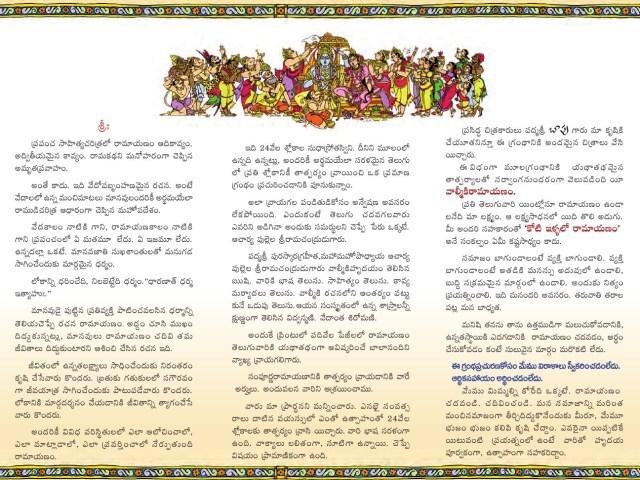 శ్రీః
ప్రపంచ సాహిత్యచరిత్రలో రామాయణం ఆదికావ్యం.
అద్వితీయమైన కావ్యం. రామకథని మనోహరంగా చెప్పిన
అమృతప్రవాహం.
అంతే కాదు. ఇది వేదోపబృంహణమైన రచన. అంటే
వేదాలలో ఉన్న మంచిమాటలు మానవులందరికీ అర్థమయేలా
రాముడిచరిత్ర ఆధారంగా చెప్పిన మహోపదేశం.
వేదకాలం నాటికి గాని, రామాయణకాలం నాటికి
గాని ప్రపంచంలో ఏ మతమూ లేదు. ఏ ఇజమూ లేదు.
ఉన్నదల్లా ఒకటే. మానవజాతి సుఖశాంతులతో మనుగడ
సాగించేందుకు మార్గమైన ధర్మం.
లోకాన్ని ధరించేది, నిలబెట్టేది ధర్మం. "ధారణాత్ ధర్మ
ఇత్యాహుః."
మానవుడై పుట్టిన ప్రతివ్యక్తీ పాటించవలసిన ధర్మాన్ని
తెలియచెప్పే రచన రామాయణం. అద్దం చూసి ముఖం
దిద్దుకున్నట్లు, మానవులు రామాయణం చదివి తమ
జీవితాలు దిద్దుకుంటారని ఆశించి చేసిన రచన ఇది.
జీవితంలో ఉన్నతలక్ష్యాలు సాధించేందుకు నిరంతరం
కృషి చేసేవారు కొందరు. బ్రతుకు గతుకులలో సగౌరవం
గా జీవయాత్ర సాగించేందుకు పాటుపడేవారు కొందరు.
లోకానికి మార్గదర్శనం చేయడానికి జీవితాన్ని త్యాగంచేసే
వారు కొందరు.
అందరికీ వివిధ పరిస్థితులలో ఎలా ఆలోచించాలో,
ఎలా మాట్లాడాలో, ఎలా ప్రవర్తించాలో నేర్పుతుంది
రామాయణం.
ఇది 24వేల శ్లోకాల సుధాస్రోతస్విని. దీనిని మూలంలో
ఉన్నది ఉన్నట్లు, అందరికీ అర్థమయేలా సరళమైన తెలుగు
లో ప్రతి శ్లోకానికీ తాత్పర్యం వ్రాయించి ఒక ప్రమాణ
గ్రంథం ప్రచురించదానికి పూనుకున్నాం.
అలా వ్రాయగల పండితుడికోసం అన్వేషణ అవసరం
లేకపోయింది. ఎందుకంటే తెలుగు చదవగలవారు
ఎవరిని అడిగినా అందుకు సమర్థులని చెప్పే పేరు ఒక్కటే.
ఆచార్య పుల్లెల శ్రీరామచంద్రుడుగారు.
పద్మశ్రీ పురస్కారగ్రహీత, మహామహోపాధ్యాయ ఆచార్య
పుల్లెల శ్రీరామచంద్రుడుగారు వాల్మీకిహృదయం తెలిసిన
ఋషి. వారికి భాష తెలుసు. సాహిత్యం తెలుసు. కావ్య
మర్యాదలు తెలుసు. వాల్మీకి రచనలోని ఆంతర్యం పట్టు
కునే ఒడుపు తెలుసు. ఆయన సంస్కృతంలో ఉన్న శాస్త్రాలన్నీ
క్షుణ్ణంగా తెలిసిన విద్వన్మణి. వేదాంత శిరోమణి.
అందుకే ప్రింటులో పదివేల పేజీలలో రామాయణం
తెలుగువారికి యథాతథంగా ఆవిష్కరించే బాలానందిని
వ్యాఖ్య వ్రాయగలిగారు.
సంపూర్ణరామాయణానికి తాత్పర్యం వ్రాయడానికి వారే
అర్హులు. అందువలన వారిని ఆశ్రయించాము.
వారు మా ప్రార్థనని మన్నించారు. ఎనభై సంవత్స
రాలు దాటిన వయస్సులో ఎంతో ఉత్సాహంతో 24వేల
శ్లోకాలకు తాత్పర్యం వ్రాసి యిచ్చారు. వారి భాష సరళంగా
ఉంది. వాక్యాలు లలితంగా, సూటిగా ఉన్నాయి. చెప్పే
విషయం ప్రామాణికంగా ఉంది.
ప్రసిద్ధ చిత్రకారులు పద్మశ్రీ బాపు గారు మా కృషికి
చేయూతనిస్తూ ఈ గ్రంథానికి అందమైన చిత్రాలు వేసి
యిచ్చారు.
ఈ విధంగా మూలగ్రంథానికి యథాతథమైన
తాత్పర్యాలతో సర్వాంగసుందరంగా వెలువడింది యీ
వాల్మీకిరామాయణం.
ప్రతి తెలుగువారి యింట్లోనూ రామాయణం ఉండా
లనేది మా లక్ష్యం. ఆ లక్ష్యసాధనలో యిది తొలి అడుగు.
మీ అందరి సహకారంతో 'కోటి ఇళ్ళలో రామాయణం'
అనే సంకల్పం ఏమీ కష్టసాధ్యం కాదు.
సమాజం బాగుండాలంటే వ్యక్తి బాగుండాలి. వ్యక్తి
బాగుండాలంటే అతడికి మనస్సు అదుపులో ఉండాలి,
బుద్ధి సక్రమమైన మార్గంలో ఉండాలి. అందుకు నిత్యం
ప్రయత్నించాలి. ఇది మనందరి అవసరం. తరువాతి తరాల
పట్ల మన బాధ్యత.
మనిషి తనను తాను ఉత్తముడిగా మలుచుకోవడానికి,
ఉన్నతస్థాయికి ఎదగడానికి రామాయణం చదవడం, అర్థం
చేసుకోవడం కంటే సులువైన మార్గం మరొకటి లేదు.
ఈ గ్రంథప్రచురణకోసం మేము విరాళాలు స్వీకరించడంలేదు.
ఆర్థికసహాయం అర్థించడంలేదు.
మేము మిమ్మల్ని కోరేది ఒక్కటే. రామాయణం
చదవండి. చదివించండి. మన సమాజాన్ని మరింత
మంచిసమాజంగా తీర్చిదిద్దుకొనేందుకు మీరూ, మేమూ
భుజం భుజం కలిపి కృషి చేద్దాం. ఎవరైనా యిప్పటికే
యిటువంటి ప్రయత్నంలో ఉంటే వారితో హృదయ
పూర్వకంగా, ఉత్సాహంగా సహకరిద్దాం.